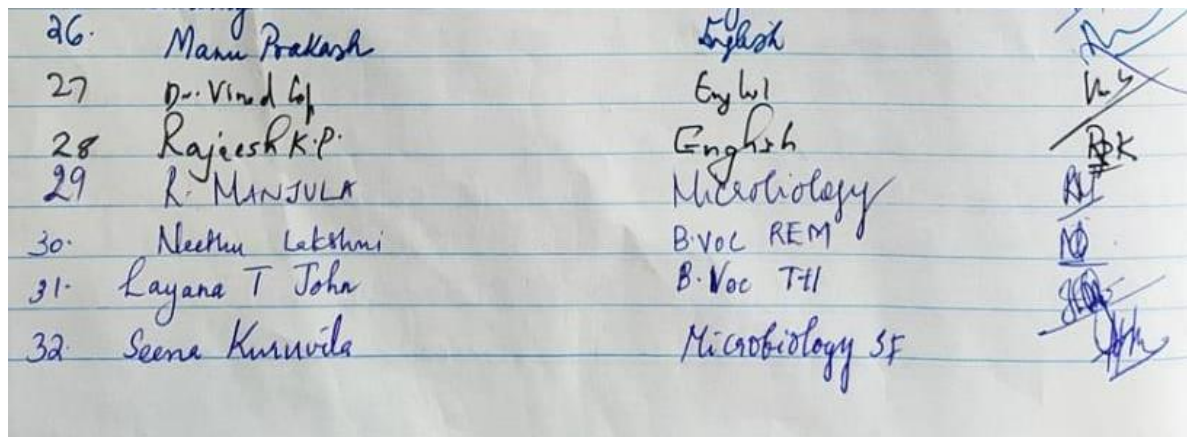 26. Manu Prakash English
27 Dr. Vinod English
28 Rajeesh K.P. English RPK
29 R. MANJULA Microbiology RM
30. Neethu Lakshmi B.Voc REM
31. Layana T John B.Voc TH
32. Seena Kuruvila Microbiology SF